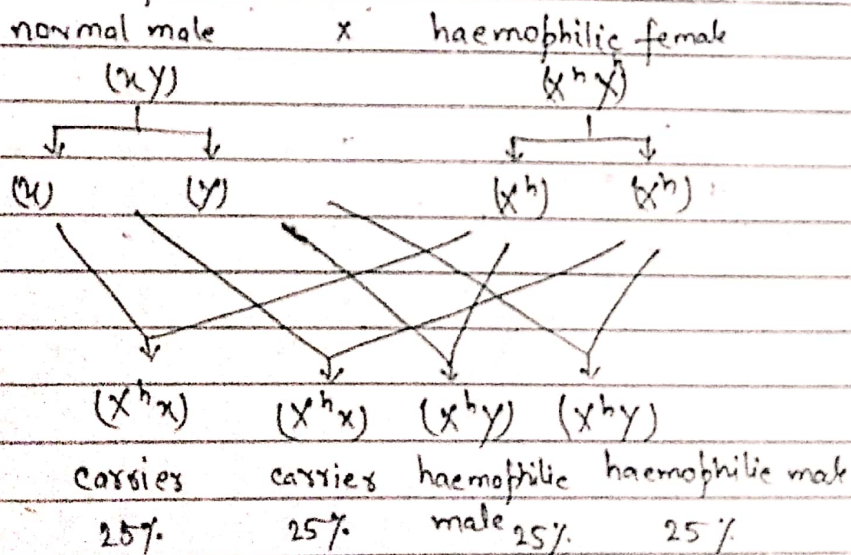 normal male x haemophilic female
(xy) (XʰXʰ)
(x) (y) (xʰ) (xʰ)
(Xʰx) (Xʰx) (xʰy) (xʰy)
carrier carrier haemophilic haemophilic male
25% 25% male 25% 25%